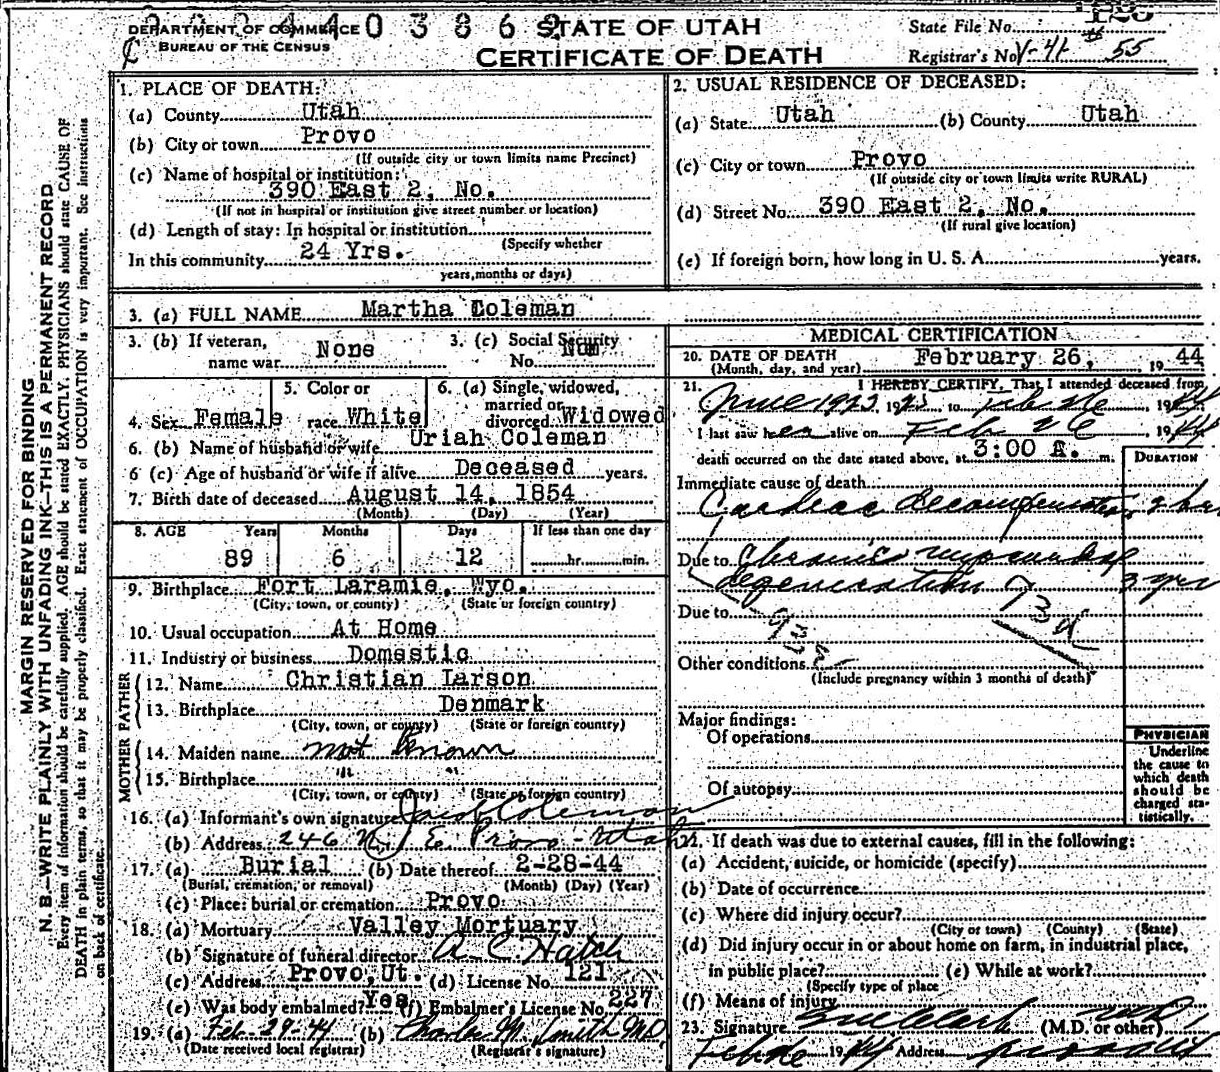 DEPARTMENT OF COMMERCE
BUREAU OF THE CENSUS
STATE OF UTAH
CERTIFICATE OF DEATH
State File No.
Registrar's No. V-41 # 55
MARGIN RESERVED FOR BINDING
N. B.—WRITE PLAINLY WITH UNFADING INK—THIS IS A PERMANENT RECORD
Every item of information should be carefully supplied. AGE should be stated EXACTLY. PHYSICIANS should state CAUSE OF
DEATH in plain terms, so that it may be properly classified. Exact statement of OCCUPATION is very important. See instructions
on back of certificate.
1. PLACE OF DEATH:
(a) County Utah
(b) City or town Provo
(If outside city or town limits name Precinct)
(c) Name of hospital or institution:
390 East 2, No.
(If not in hospital or institution give street number or location)
(d) Length of stay: In hospital or institution
(Specify whether
In this community 24 Yrs.
years, months or days)
2. USUAL RESIDENCE OF DECEASED:
(a) State Utah (b) County Utah
(c) City or town Provo
(If outside city or town limits write RURAL)
(d) Street No. 390 East 2, No.
(If rural give location)
(e) If foreign born, how long in U. S. A. years.
3. (a) FULL NAME Martha Coleman
3. (b) If veteran,
name war None
3. (c) Social Security
No.
4. Sex Female
5. Color or
race White
6. (a) Single, widowed,
married or
divorced Widowed
6. (b) Name of husband or wife Uriah Coleman
6 (c) Age of husband or wife if alive Deceased years.
7. Birth date of deceased August 14, 1854
(Month) (Day) (Year)
8. AGE Years Months Days If less than one day
89 6 12 hr. min.
9. Birthplace Fort Laramie, Wyo.
(City, town, or county) (State or foreign country)
10. Usual occupation At Home
11. Industry or business Domestic
FATHER
12. Name Christian Larson
13. Birthplace Denmark
(City, town, or county) (State or foreign country)
MOTHER
14. Maiden name not known
15. Birthplace " "
(City, town, or county) (State or foreign country)
16. (a) Informant's own signature Jacob Coleman
(b) Address 246 N. 1 E Provo - Utah
17. (a) Burial (b) Date thereof 2-28-44
(Burial, cremation, or removal) (Month) (Day) (Year)
(c) Place: burial or cremation Provo
18. (a) Mortuary Valley Mortuary
(b) Signature of funeral director A C Hatch
(c) Address Provo, Ut. (d) License No. 121
(e) Was body embalmed? Yes (f) Embalmer's License No. 227
19. (a) Feb-29-44 (b) Charles M. Smith M.D.
(Date received local registrar) (Registrar's signature)
MEDICAL CERTIFICATION
20. DATE OF DEATH February 26, 1944
(Month, day, and year)
21. I HEREBY CERTIFY, That I attended deceased from
June to Feb 26, 1944
I last saw her alive on Feb 26, 1944
death occurred on the date stated above, at 3:00 A. m.
DURATION
Immediate cause of death
Cardiac Decompensation
Due to Chronic myocardial
degeneration 3 yrs
Due to
93d
Other conditions
(Include pregnancy within 3 months of death)
Major findings:
Of operations
Of autopsy
PHYSICIAN
Underline
the cause to
which death
should be
charged sta-
tistically.
22. If death was due to external causes, fill in the following:
(a) Accident, suicide, or homicide (specify)
(b) Date of occurrence
(c) Where did injury occur?
(City or town) (County) (State)
(d) Did injury occur in or about home on farm, in industrial place,
in public place? (e) While at work?
(Specify type of place
(f) Means of injury
23. Signature Clark (M.D. or other)
1944 Address Provo Ut